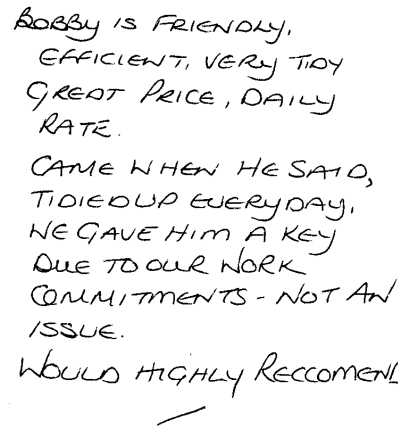 BOBBY IS FRIENDLY,
EFFICIENT, VERY TIDY
GREAT PRICE, DAILY
RATE.
CAME WHEN HE SAID,
TIDIED UP EVERY DAY,
WE GAVE HIM A KEY
DUE TO OUR WORK
COMMITMENTS - NOT AN
ISSUE.
WOULD HIGHLY RECCOMEND